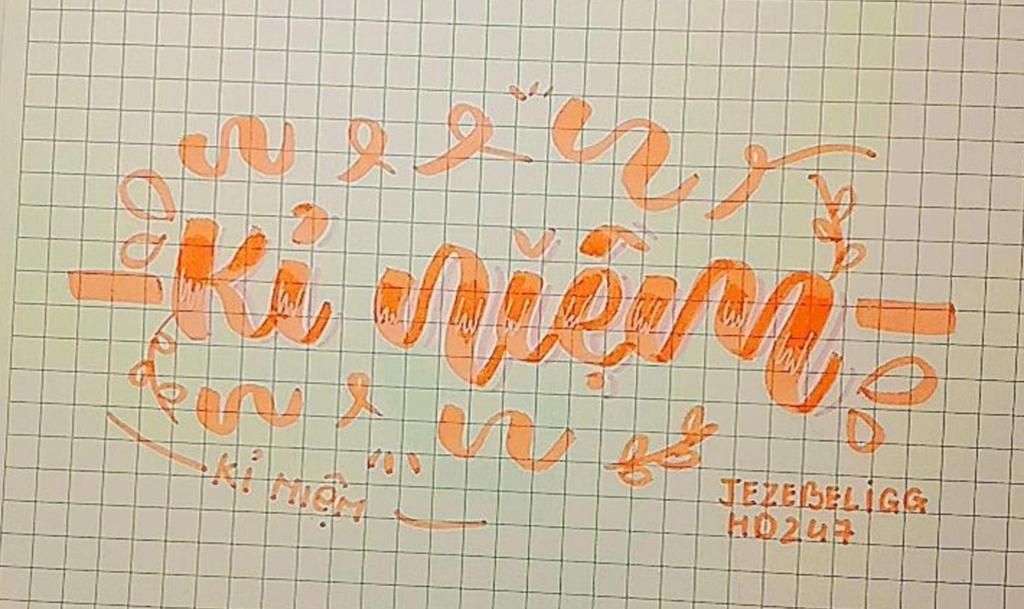 Kỉ niệm
Kỉ NiệM
JEZEBELiGG
HD247